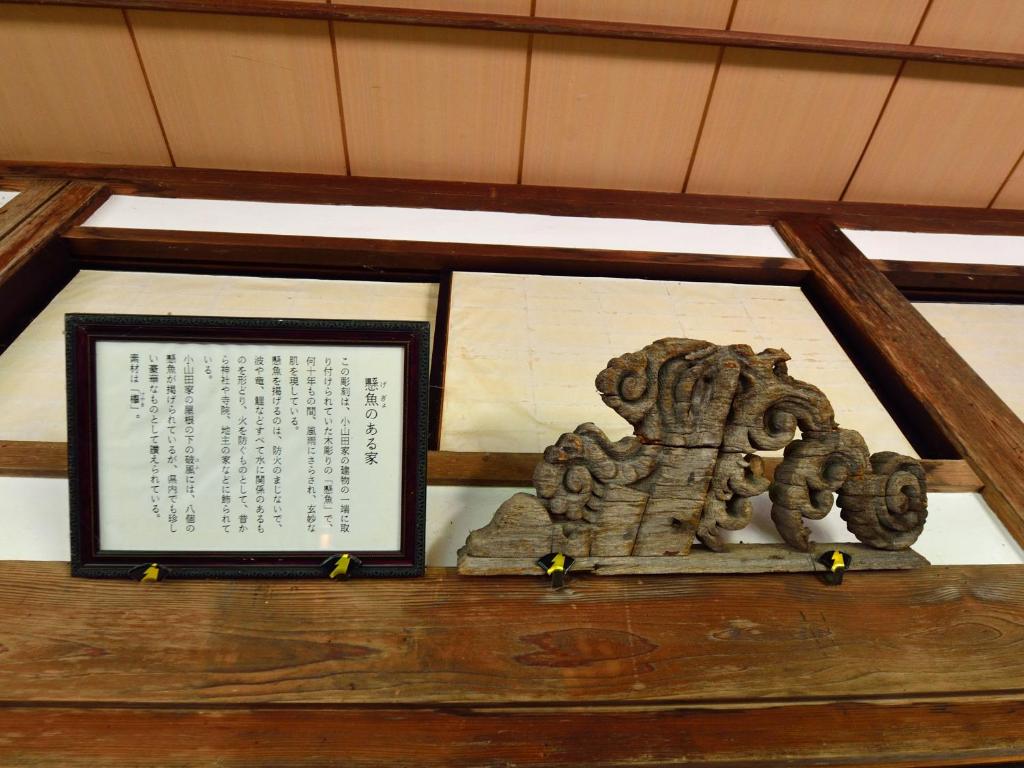 懸魚のある家
げぎょ
この彫刻は、小山田家の建物の一端に取
り付けられていた木彫りの「懸魚」で、
何十年もの間、風雨にさらされ、玄妙な
肌を現している。
懸魚を掲げるのは、防火のまじないで、
波や竜、鯉などすべて水に関係のあるも
のを形どり、火を防ぐものとして、昔か
ら神社や寺院、地主の家などに飾られて
いる。
小山田家の屋根の下の破風には、八個の
懸魚が掲げられているが、県内でも珍し
い豪華なものとして讃えられている。
素材は「欅」。
けやき